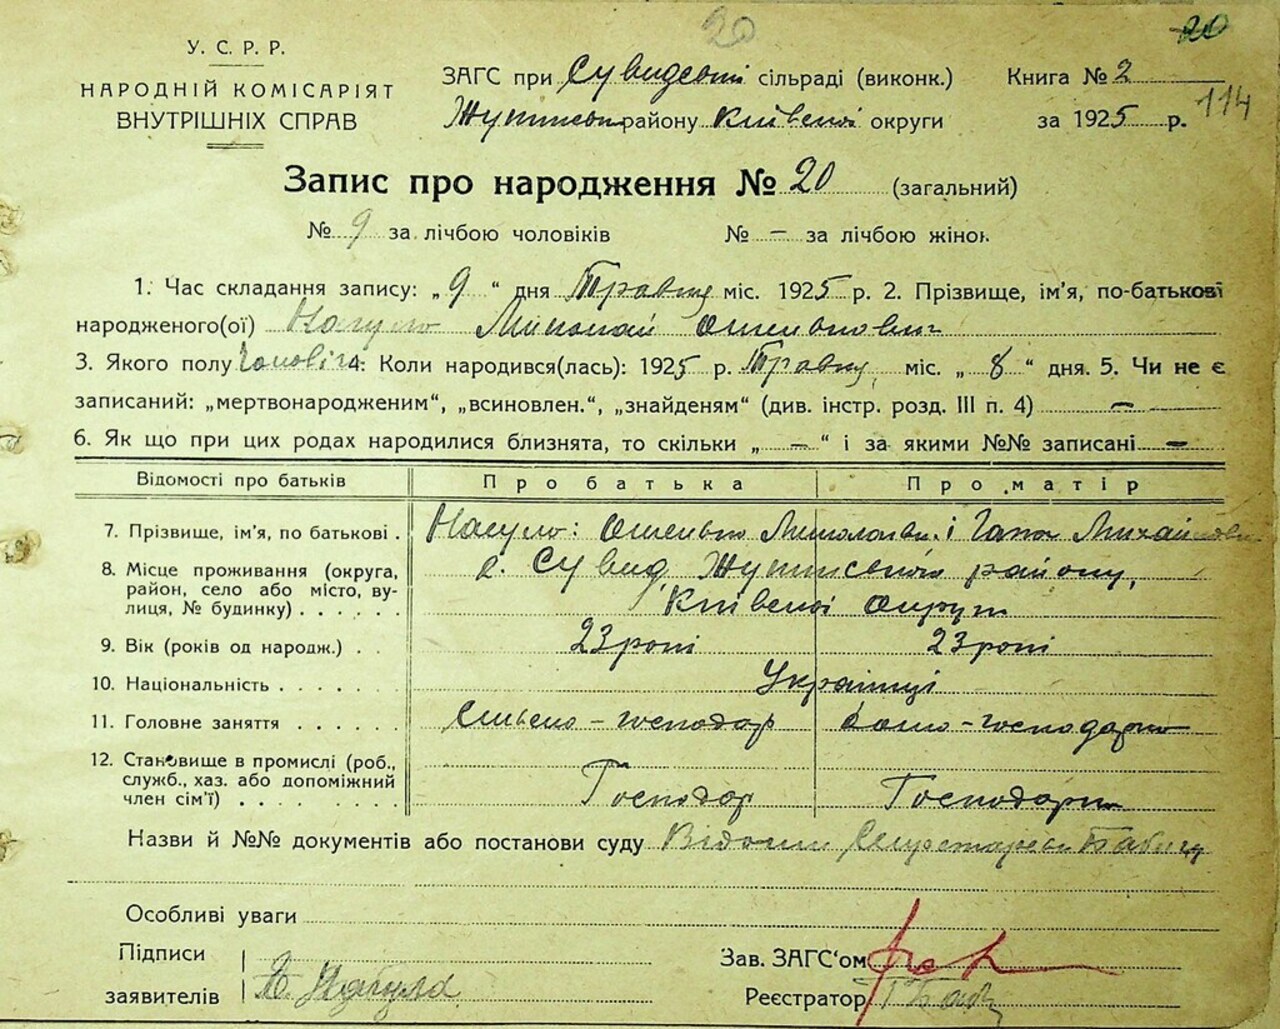 20
20
У. С. Р. Р.
НАРОДНІЙ КОМІСАРІЯТ
ВНУТРІШНІХ СПРАВ
ЗАГС при Сувидській сільраді (виконк.)
району Київської округи
Книга № 2
за 1925 р.
114
Запис про народження № 20 (загальний)
№ 9 за лічбою чоловіків № – за лічбою жінок
1. Час складання запису: „9“ дня Травня міс. 1925 р. 2. Прізвище, ім'я, по-батькові
народженого(ої) Миколай
3. Якого полу Чоловіч 4: Коли народився(лась): 1925 р. Травня, міс. „8“ дня. 5. Чи не є
записаний: „мертвонародженим“, „всиновлен.“, „знайденям“ (див. інстр. розд. III п. 4) –
6. Як що при цих родах народилися близнята, то скільки „–“ і за якими №№ записані –
Відомості про батьків Про батька Про матір
7. Прізвище, ім'я, по батькові . і Михайлов
8. Місце проживання (округа, район, село або місто, вулиця, № будинку) . . . . . . с. Сувид, району,
Київської Округи
9. Вік (років од народж.) . . 23 роки 23 роки
10. Національність . . . . . . . Українці
11. Головне заняття . . . . . . Сільсько-господар Домо-господарка
12. Становище в промислі (роб., служб., хаз. або допоміжний член сім'ї) . . . . . . . . Господар Господарка
Назви й №№ документів або постанови суду Відомий
Особливі уваги
Підписи
заявителів
Зав. ЗАГС'ом
Реєстратор